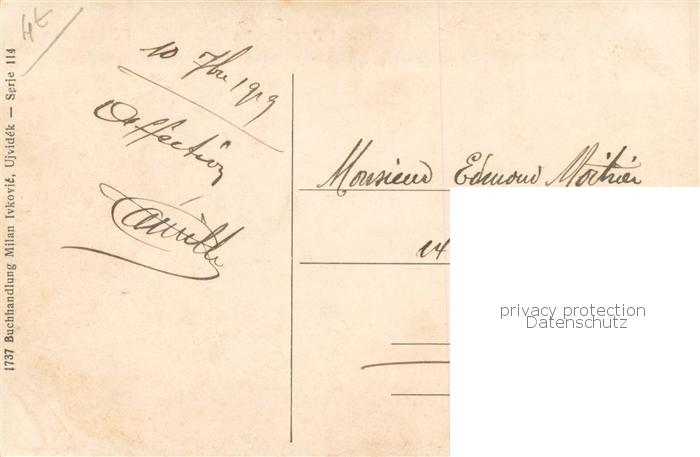 1737 Buchhandlung Milan Ivković, Ujvidék — Serie 114
10 7bre 1919
Affection
Camille
Monsieur Edmond
14
privacy protection
Datenschutz